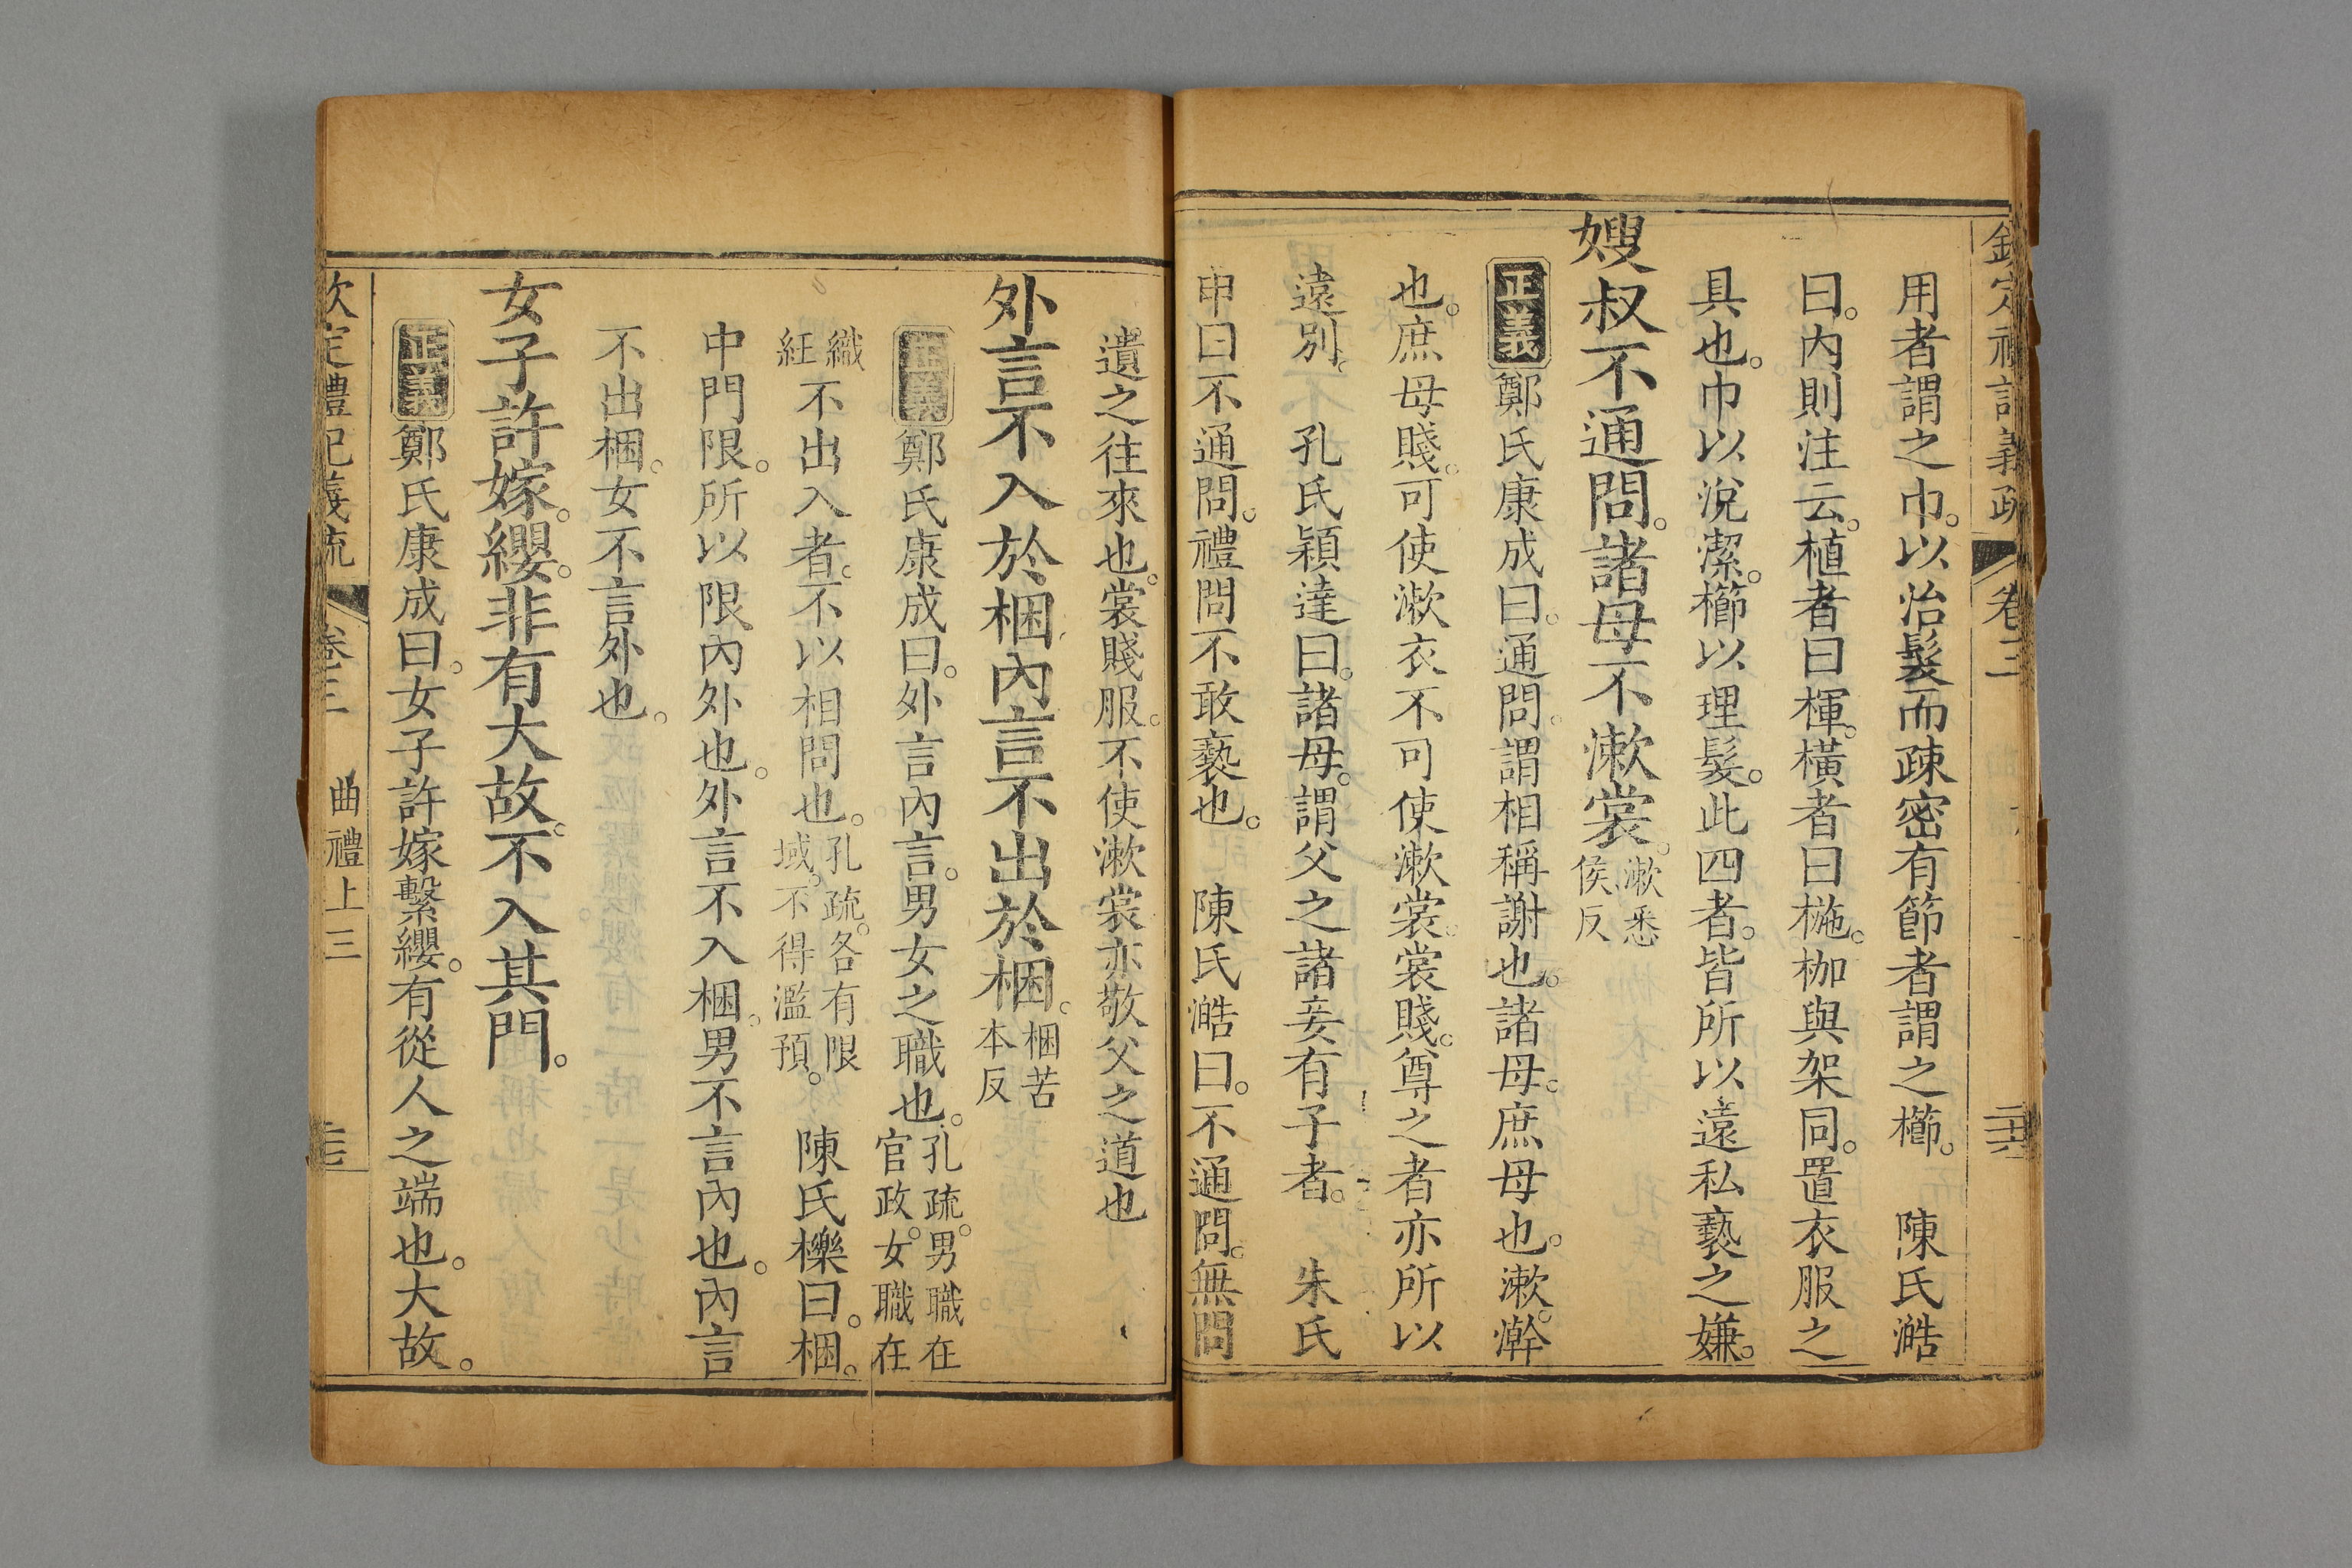 欽定禮記義疏 卷三 二十六
用者謂之巾。以治髮而疎密有節者謂之櫛。 陳氏澔
曰。內則注云。植者曰楎。橫者曰椸。枷與架同。置衣服之
具也。巾以涗潔。櫛以理髮。此四者。皆所以遠私褻之嫌。
嫂叔不通問。諸母不漱裳。漱悉侯反
正義鄭氏康成曰。通問。謂相稱謝也。諸母。庶母也。漱。澣
也。庶母賤。可使漱衣不可使漱裳。裳賤。尊之者亦所以
遠別。 孔氏穎達曰。諸母。謂父之諸妾有子者。 朱氏
申曰不通問。禮問不敢褻也。 陳氏澔曰。不通問。無問
遺之往來也。裳賤服。不使漱裳亦敬父之道也
外言不入於梱內言不出於梱。梱苦本反
正義鄭氏康成曰。外言內言。男女之職也。孔疏。男職在官政。女職在
織紝不出入者。不以相問也。孔疏。各有限域。不得濫預。 陳氏櫟曰。梱。
中門限。所以限內外也。外言不入梱。男不言內也。內言
不出梱。女不言外也。
女子許嫁。纓。非有大故。不入其門。
正義鄭氏康成曰。女子許嫁繫纓。有從人之端也。大故。
欽定禮記義疏 卷三 曲禮上三 二十七